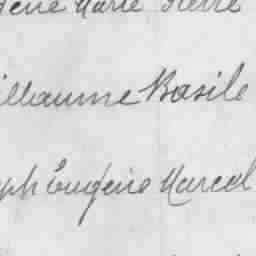 Marie Pierre
illaume Basile
ph Eugène Marcel